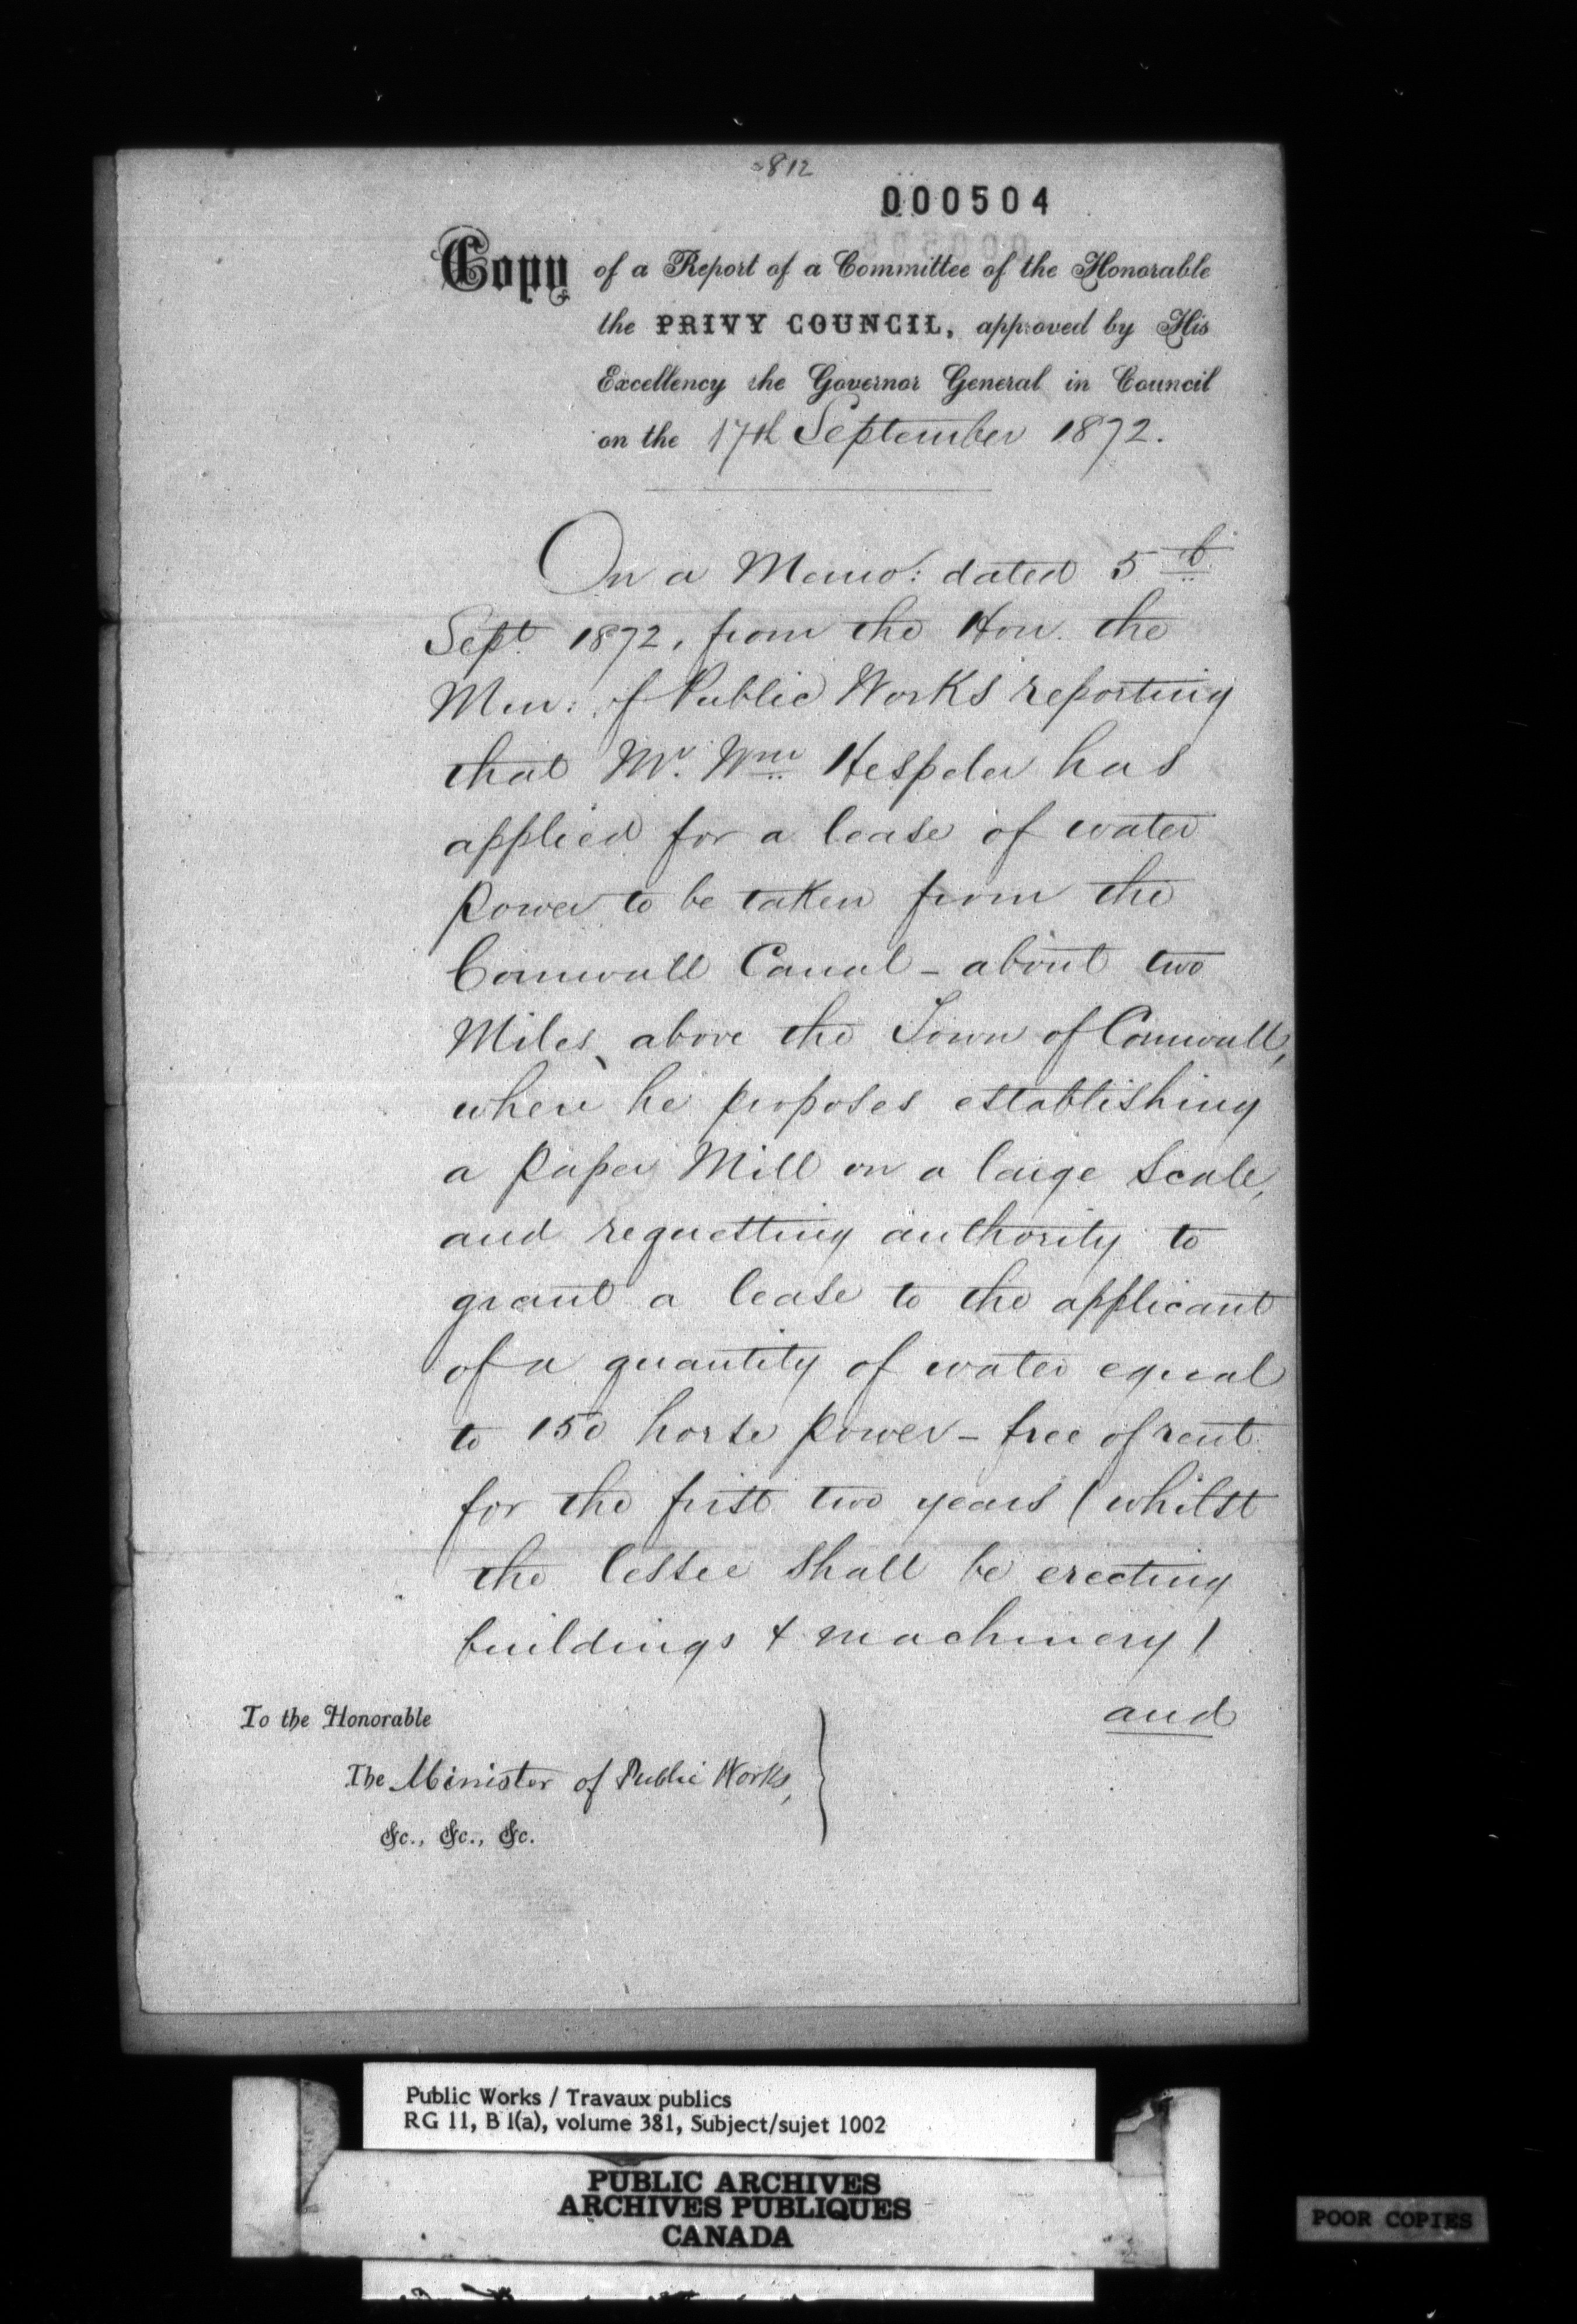 812
000504
Copy of a Report of a Committee of the Honorable
the PRIVY COUNCIL, approved by His
Excellency the Governor General in Council
on the 17th September 1872.
On a Memo: dated 5th
Sept. 1872, from the Hon. the
Min: of Public Works reporting
that Mr. Wm Hespeler has
applied for a lease of water
power to be taken from the
Cornwall Canal - about two
Miles, above the Town of Cornwall,
where he proposes establishing
a Paper Mill on a large scale,
and requesting authority to
grant a lease to the applicant
of a quantity of water equal
to 150 horse power - free of rent
for the first two years (whilst
the lessee shall be erecting
buildings & machinery)
and
To the Honorable
The Minister of Public Works,
&c., &c., &c.
Public Works / Travaux publics
RG 11, B 1(a), volume 381, Subject/sujet 1002
PUBLIC ARCHIVES
ARCHIVES PUBLIQUES
CANADA
POOR COPIES